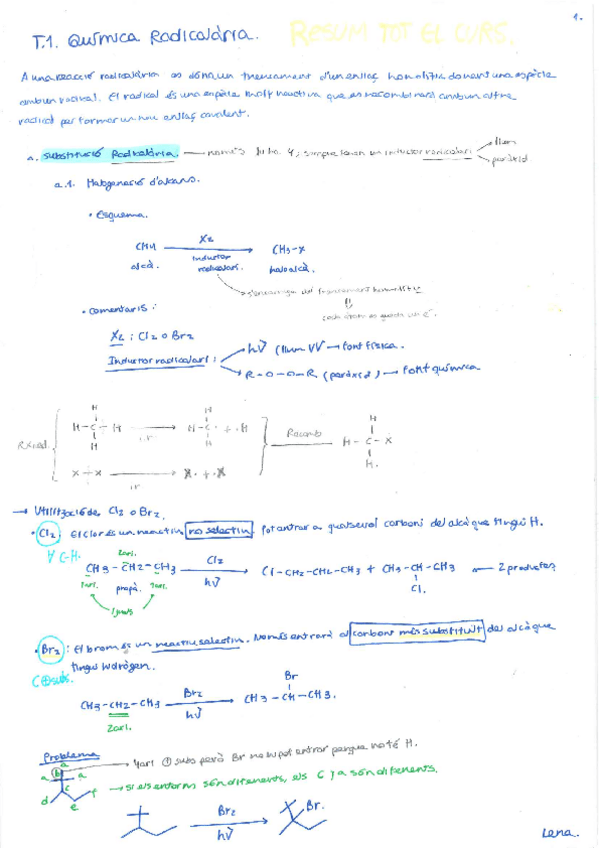 T.1. Química Radicalària. RESUM TOT EL CURS.
1.
A una reacció radicalària es dóna un trencament d'un enllaç homolític donant una espècie
amb un radical. El radical és una espècie molt reactiva que es recombinarà amb un altre
radical per formar un nou enllaç covalent.
a. Substitució Radicalària. només sempre tenen un inductor radicalari
llum
peròxid.
a.1. Halogenació d'alcans.
• Esquema.
CH4 X2 CH3-X
alcà. inductor radicalari. haloalcà.
s'encarrega del trencament homolític
• Comentaris:
X2 : Cl2 o Br2
Inductor radicalari:
hν (llum UV → font física.
R-O-O-R (peròxid) → Font química
H H H
H-C-H H-C· + ·H Recomb H-C-X
H H H.
X-X X· + ·X
→ Utilització de Cl2 o Br2.
• Cl2. El clor és un reactiu no selectiu. Pot entrar a qualsevol carboni del alcà que tingui H.
∀ C-H.
2ari.
CH3-CH2-CH3 Cl2 hν Cl-CH2-CH2-CH3 + CH3-CH-CH3 2 productes
1ari. propà. 1ari. Cl.
iguals
• Br2: El brom és un reactiu selectiu. Només entrarà al carboni més substituït del alcà que
tingui hidrògen.
C⊕subs.
CH3-CH2-CH3 Br2 hν CH3-CH-CH3.
Br
2ari.
Problema
4ari ⊕ subs però Br no hi pot entrar perquè no té H.
a a b a c d e f
→ Si els entorns són diferents, els C ja són diferents.
Br2 hν Br.
Lena.